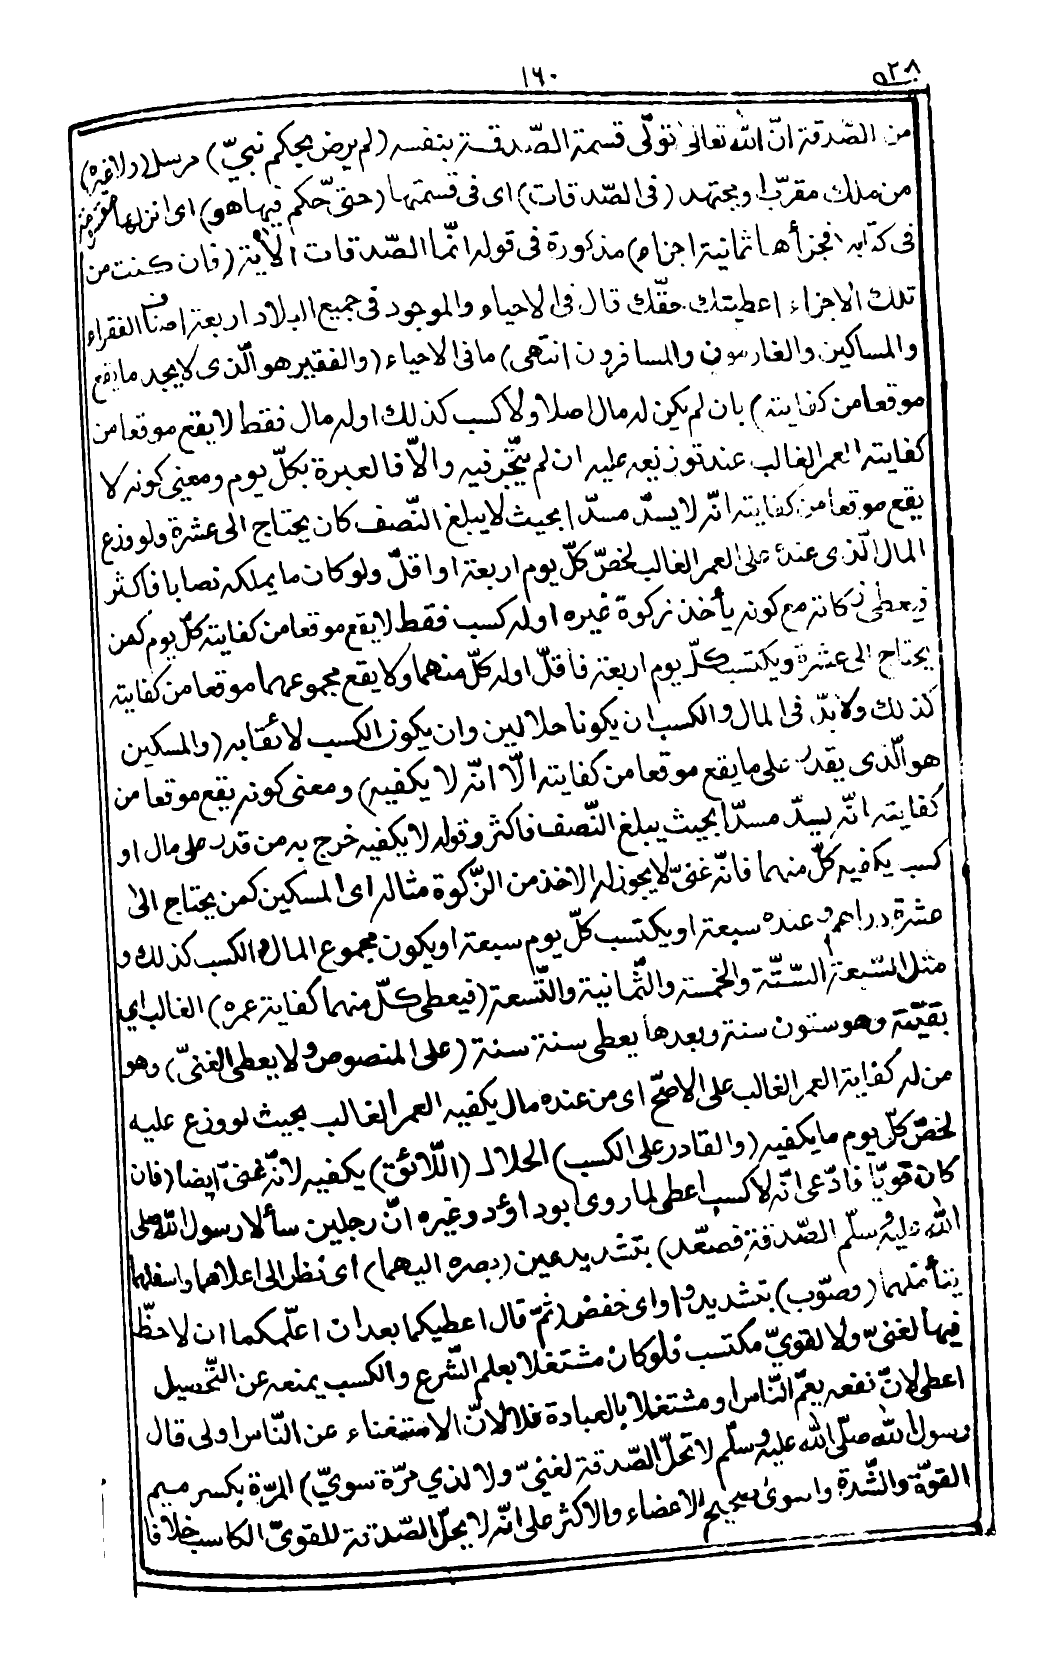 ٥٢٨
١٦٠
من الصّدقة انّ الله تعالىٰ تولّى قسمة الصّدقة بنفسه (لم يرض بحكم نبيّ) مرسل (ولا غيره)
من ملك مقرّب او مجتهد (فى الصّدقات) اى فى قسمتها (حتى حكّم فيها هو) اى انزلها مفروضة
فى كتابه (فجزأها ثمانية اجزاء) مذكورة فى قوله انّما الصّدقات الأية (فان كنت من
تلك الاجزاء اعطيتك حقّك قال فى الاحياء والموجود فى جميع البلاد اربعة اصناف الفقراء
والمساكين والغارمون والمسافرون انتهى) ما فى الاحياء (والفقير هو الّذى لا يجد ما يقع
موقعا من كفايته) بان لم يكن له مال اصلا ولا كسب كذلك او له مال فقط لا يقع موقعا من
كفايته العمر الغالب عند توزيعه عليه ان لم يتّجر فيه والّا فالعبرة بكلّ يوم ومعنى كونه لا
يقع موقعا من كفايته انّه لا يسدّ مسدّا بحيث لا يبلغ النّصف كان يحتاج الى عشرة ولو وزع
المال الّذى عنده على العمر الغالب لخصّ كلّ يوم اربعة او اقلّ ولو كان ما يملكه نصابا فاكثر
فيعطى زكاته مع كونه يأخذ زكوة غيره او له كسب فقط لا يقع موقعا من كفايته كلّ يوم كمن
يحتاج الى عشرة ويكتسب كلّ يوم اربعة فأقلّ او له كلّ منهما ولا يقع مجموعهما موقعا من كفايته
كذلك ولا بدّ فى المال والكسب ان يكونا حلالين وان يكون الكسب لائقا به (والمسكين
هو الّذى يقدر على ما يقع موقعا من كفايته الّا انّه لا يكفيه) ومعنى كونه يقع موقعا من
كفايته انّه يسدّ مسدّا بحيث يبلغ النّصف فاكثر وقوله لا يكفيه خرج به من قدر على مال او
كسب يكفيه كلّ منهما فانّه غنىّ لا يجوز له الاخذ من الزّكوة مثاله اى المسكين كمن يحتاج الى
عشرة دراهم وعنده سبعة او يكتسب كلّ يوم سبعة او يكون مجموع المال والكسب كذلك و
مثل السّبعة السّتّة والخمسة والثّمانية والتّسعة (فيعطى كلّ منهما كفاية عمره) الغالب اي
بقيّته وهو ستون سنة وبعدها يعطى سنة سنة (على المنصوص ولا يعطى الغنىّ) وهو
من له كفاية العمر الغالب على الاصحّ اى من عنده مال يكفيه العمر الغالب بحيث لو وزع عليه
لخصّ كلّ يوم ما يكفيه (والقادر على الكسب) الحلال (اللّائق) يكفيه لانّه غنىّ ايضا (فان
كان قويّا فادّعى انّه لا كسب اعطى لما روى ابو داؤد وغيره انّ رجلين سألا رسول الله صلى
الله عليه وسلّم الصّدقة فصعّد) بتشديد عين (بصره اليهما) اى نظر الى اعلاهما واسفلهما
يتأمّلهما (وصوّب) بتشديد واو اى خفض (ثمّ قال اعطيكما بعد ان اعلّمكما ان لا حظّ
فيها لغنىّ ولا لقويّ مكتسب فلو كان مشتغلا بعلم الشّرع والكسب يمنعه عن التّحصيل
اعطى لانّ نفعه يعمّ النّاس او مشتغلا بالعبادة فلا لانّ الاستغناء عن النّاس اولى قال
رسول الله صلّى الله عليه وسلّم لا تحلّ الصّدقة لغنىّ ولا لذي مرّة سويّ) المرّة بكسر ميم
القوّة والشّدة والسوىّ صحيح الاعضاء والاكثر على انّه لا يحلّ الصّدقة للقوىّ الكاسب خلافا